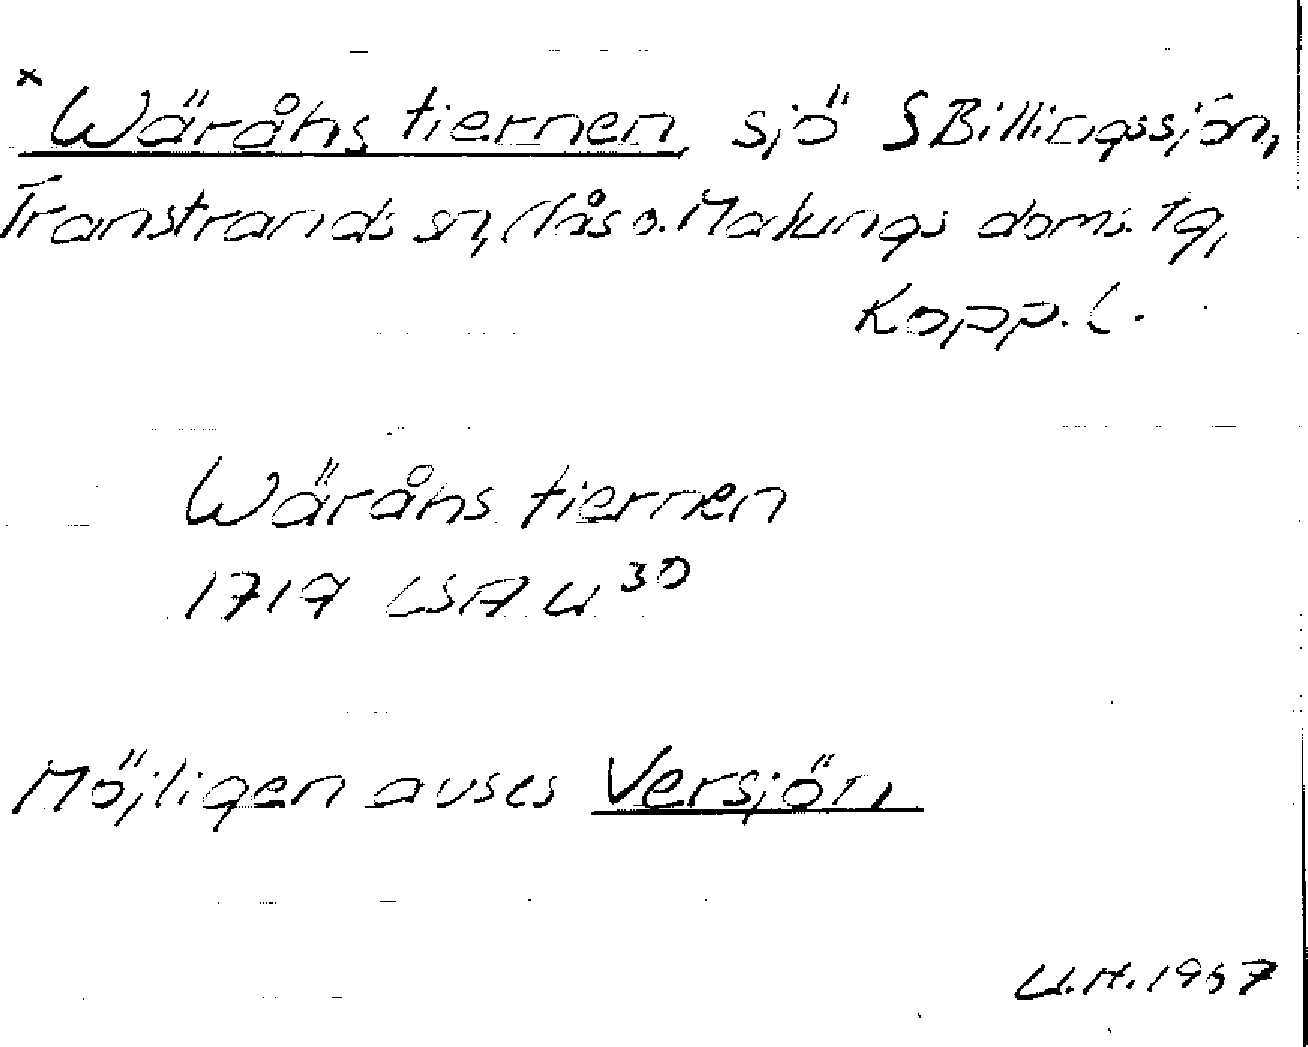 x Wäråhs tiernen sjö S Billingssjön,
Transtrands sn, Nås o. Malungs doms. tg,
Kopp. l.
Wäråhs tiernen
1719 LSA U 30
Möjligen avses Versjön
U.H. 1957